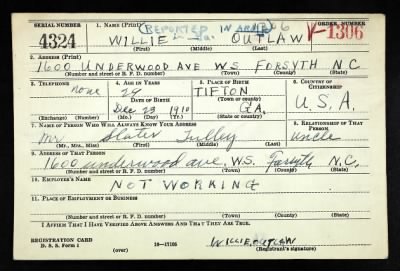 SERIAL NUMBER 1. NAME (Print) ORDER NUMBER
(REPORTED IN ARMY)
4324 WILLIE OUTLAW V-1306
(First) (Middle) (Last)
2. ADDRESS (Print)
1600 UNDERWOOD AVE W.S. FORSYTH N C
(Number and street or R. F. D. number) (Town) (County) (State)
3. TELEPHONE 4. AGE IN YEARS 5. PLACE OF BIRTH 6. COUNTRY OF CITIZENSHIP
none 29 TIFTON
DATE OF BIRTH (Town or county) U.S.A.
Dec 29 1910 GA.
(Exchange) (Number) (Mo.) (Day) (Yr.) (State or country)
7. NAME OF PERSON WHO WILL ALWAYS KNOW YOUR ADDRESS 8. RELATIONSHIP OF THAT PERSON
Mr. Slater Tulley Uncle
(Mr., Mrs., Miss) (First) (Middle) (Last)
9. ADDRESS OF THAT PERSON
1600 underwood ave, W.S. Forsyth N.C.
(Number and street or R. F. D. number) (Town) (County) (State)
10. EMPLOYER'S NAME
NOT WORKING
11. PLACE OF EMPLOYMENT OR BUSINESS
(Number and street or R. F. D. number) (Town) (County) (State)
I AFFIRM THAT I HAVE VERIFIED ABOVE ANSWERS AND THAT THEY ARE TRUE.
REGISTRATION CARD
D. S. S. Form 1 16-17105 WILLIE OUTLAW
(over) (Registrant's signature)